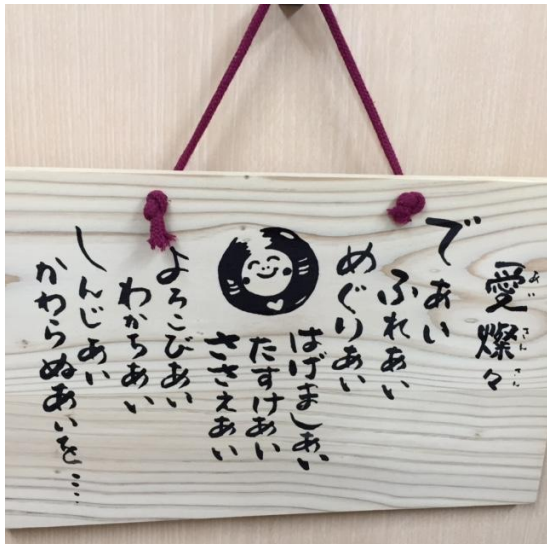 愛燦々
であい
ふれあい
めぐりあい
はげましあい
たすけあい
ささえあい
よろこびあい
わかちあい
しんじあい
かわらぬあいを…